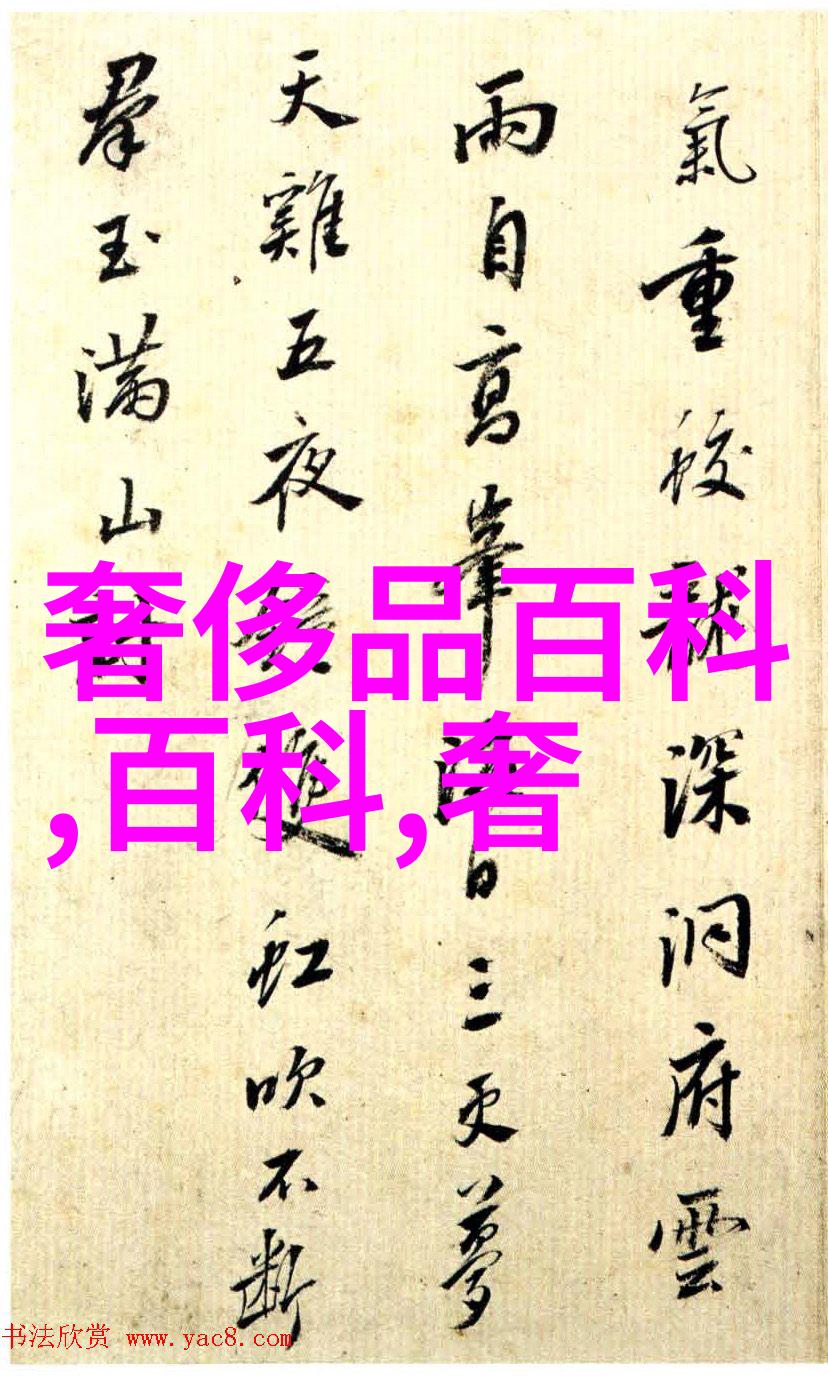 氣重蛟龍深洞府雲
雨自高峯海日三更夢
天雞五夜雙虹吹不斷
羣玉滿山
奢侈品百科
,百科,奢
书法欣赏 www.yac8.com